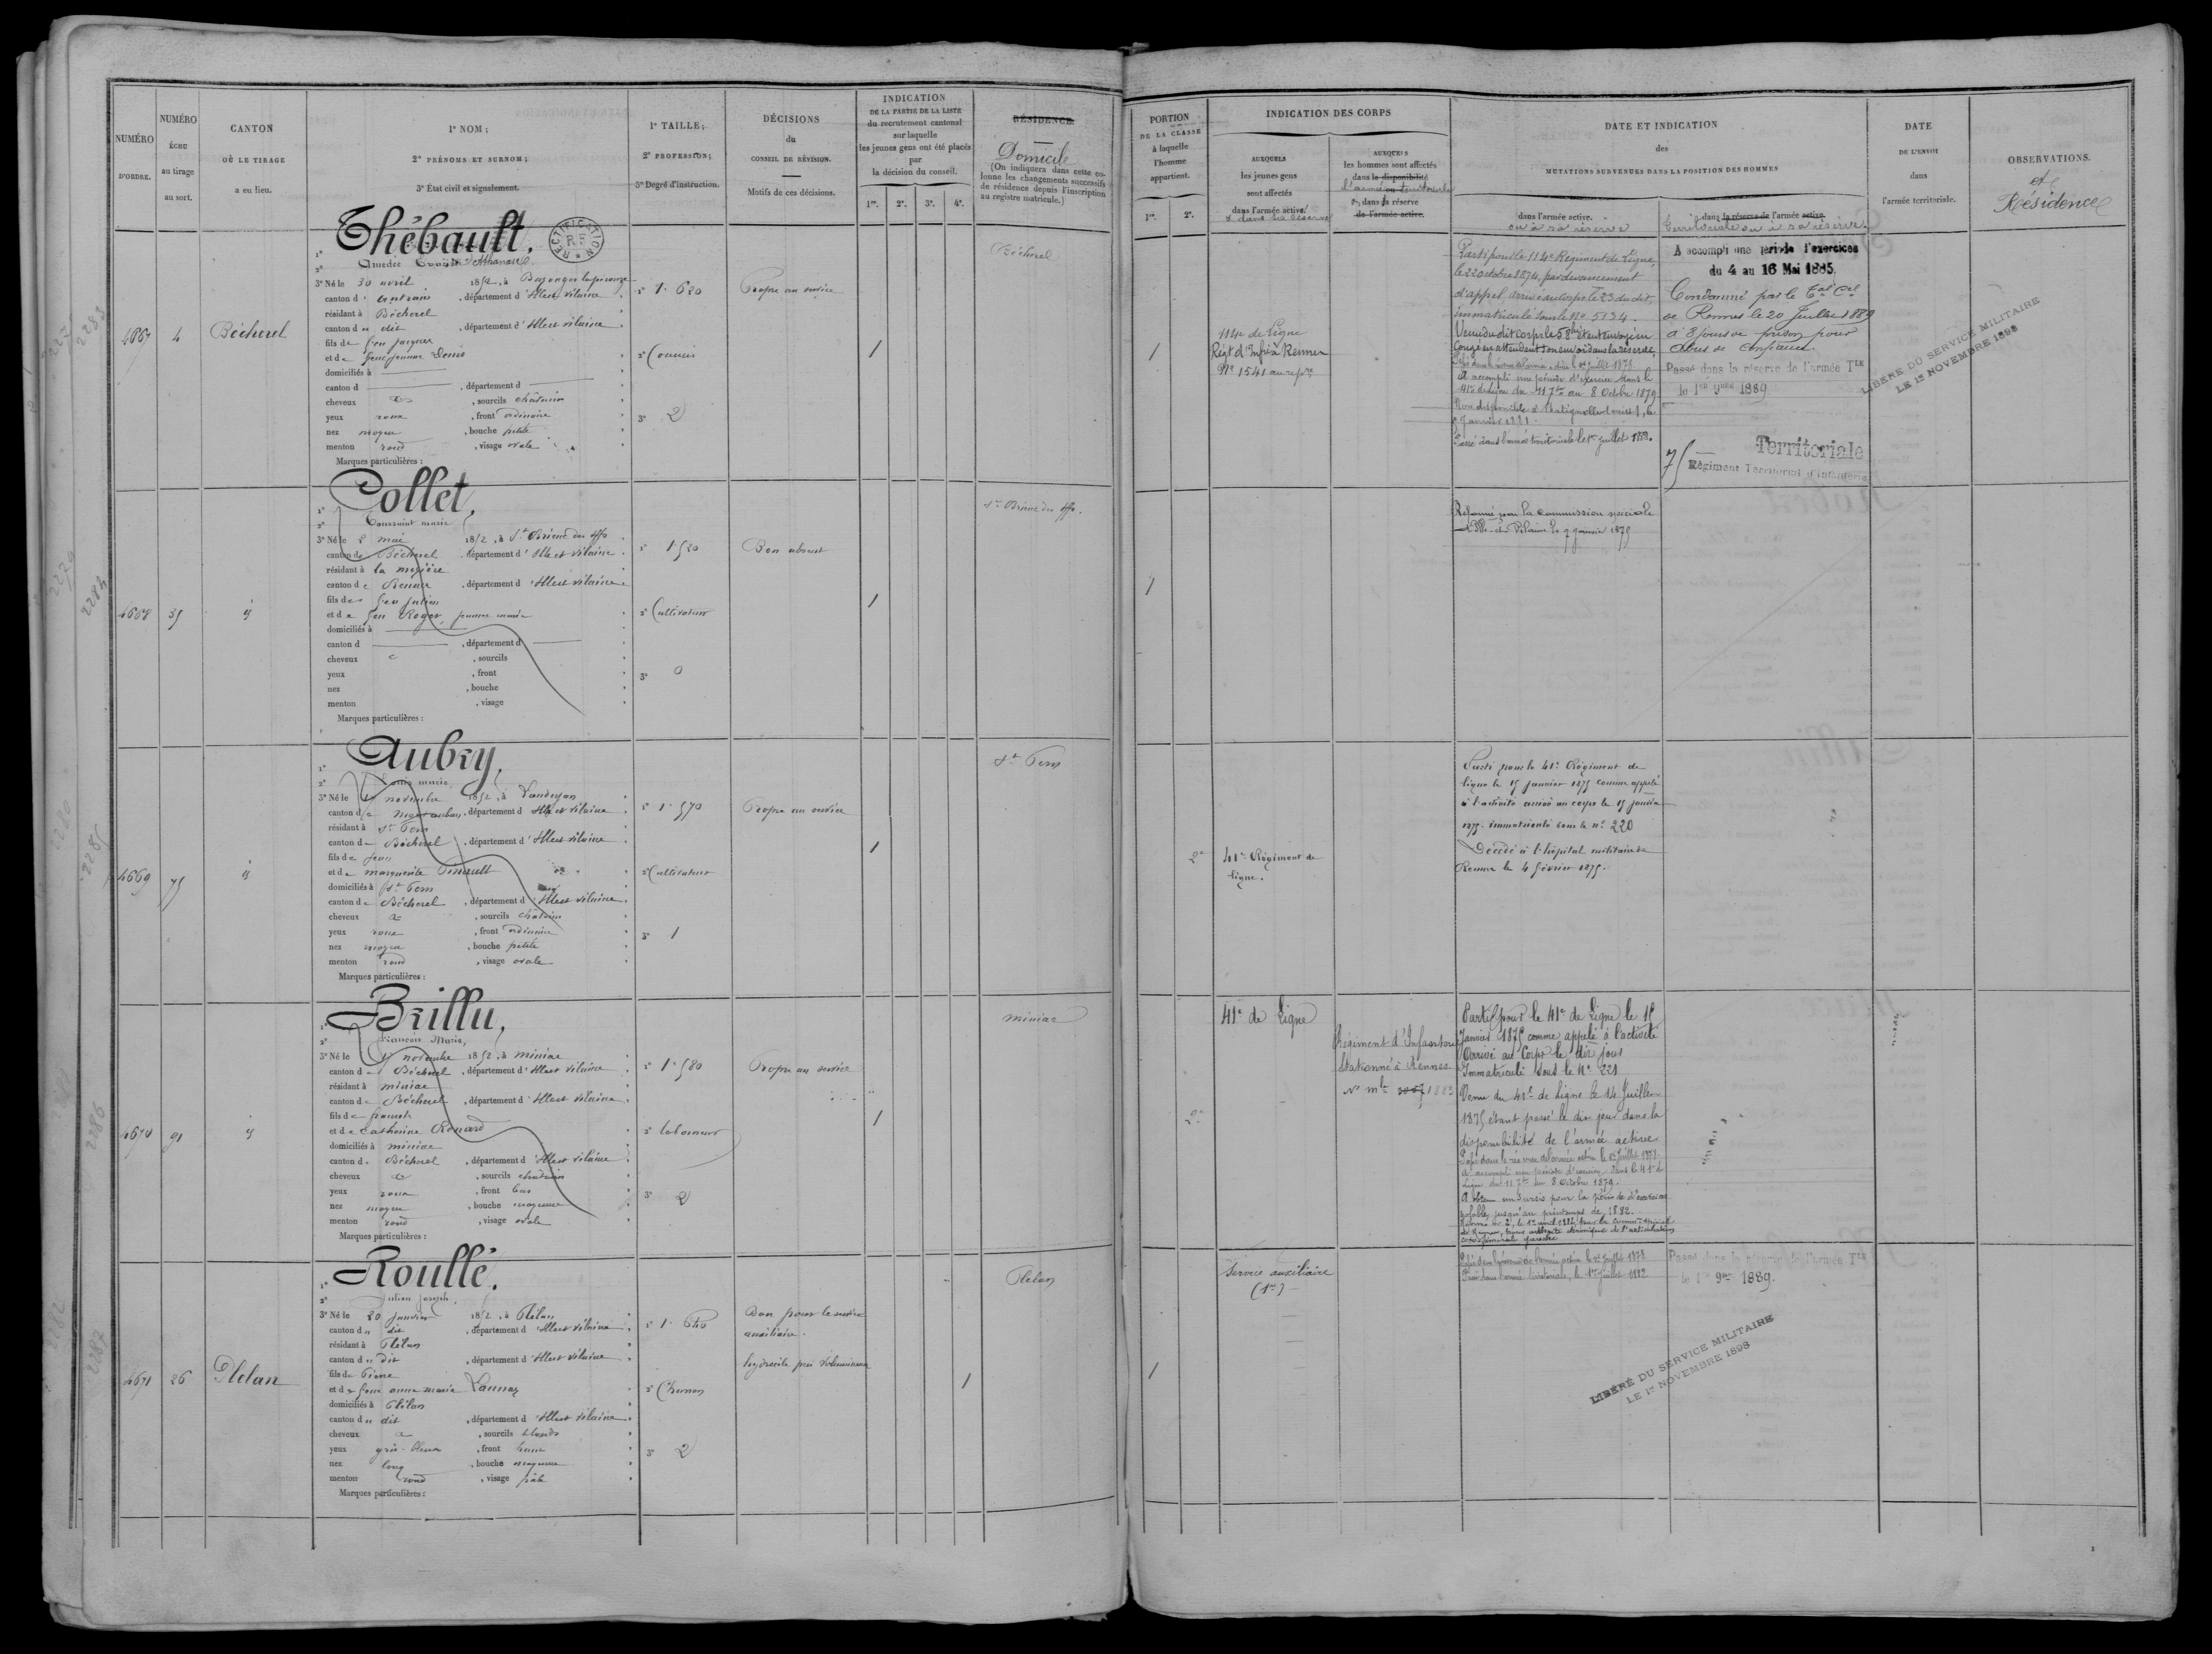 NUMÉRO
D'ORDRE.
NUMÉRO
ÉCHU
au tirage
au sort.
CANTON
OÙ LE TIRAGE
a eu lieu.
1° NOM;
2° PRÉNOMS ET SURNOM;
3° État civil et signalement.
1° TAILLE;
2° PROFESSION;
3° Degré d'instruction.
DÉCISIONS
du
CONSEIL DE RÉVISION.
Motifs de ces décisions.
INDICATION
DE LA PARTIE DE LA LISTE
du recrutement cantonal
sur laquelle
les jeunes gens ont été placés
par
la décision du conseil.
1re. 2e. 3e. 4e.
RÉSIDENCE
Domicile
(On indiquera dans cette co-
lonne les changements successifs
de résidence depuis l'inscription
au registre matricule.)
4667
4
Bécherel
Thébault,
RECTIFICATION
R F
1°
2° Amédée Athanase
3° Né le 30 avril 1852, à Bazouges la perouze
canton d'antrain, département d'Ille et Vilaine
résidant à Bécherel
canton d u dit, département d'Ille et Vilaine
fils de feu Jacques
et de feue Jeanne Denis
domiciliés à
canton d , département d
cheveux , sourcils châtains
yeux roux, front ordinaire
nez moyen, bouche petite
menton rond, visage ovale
Marques particulières :
1° 1.620
3° 2
Propre au service
1
Bécherel
4668
35
id
Collet,
1°
2° Toussaint marie
3° Né le 2 mai 1852, à St Brieuc des iffs
canton de Bécherel, département d'Ille et Vilaine
résidant à la mézière
canton de Rennes, département d'Ille et Vilaine
fils de feu Julien
et de feu Roger, Jeanne marie
domiciliés à
canton d , département d
cheveux , sourcils
yeux , front
nez , bouche
menton , visage
Marques particulières :
1° 1.520
2° Cultivateur
3° 0
Bon absent
1
St Brieuc des iffs.
4669
75
id
Aubry,
1°
2° Louis marie
3° Né le novembre 1852, à Landujan
canton de montauban, département d'Ille et Vilaine
résidant à St Pern
canton de Bécherel, département d'Ille et Vilaine
fils de Jean
et de marguerite Pinault
domiciliés à St Pern
canton de Bécherel, département d'Ille et Vilaine
cheveux , sourcils châtains
yeux roux, front ordinaire
nez moyen, bouche petite
menton rond, visage ovale
Marques particulières :
1° 1.570
2° Cultivateur
3° 1
Propre au service
1
St Pern
4670
91
id
Brillu,
1°
2° François Marie,
3° Né le novembre 1852, à miniac
canton de Bécherel, département d'Ille et Vilaine
résidant à miniac
canton de Bécherel, département d'Ille et Vilaine
fils de
et de Catherine Renard
domiciliés à miniac
canton de Bécherel, département d'Ille et Vilaine
cheveux , sourcils châtains
yeux roux, front bas
nez moyen, bouche moyenne
menton rond, visage ovale
Marques particulières :
1° 1.580
2° laboureur
3° 2
Propre au service
1
miniac
4671
26
Plelan
Roullé.
1°
2° Julien Joseph,
3° Né le 20 Janvier 1852, à Plélan
canton du dit, département d'Ille et Vilaine
résidant à Plélan
canton du dit, département d'Ille et Vilaine
fils de Pierre
et de feue anne marie Launay
domiciliés à Plélan
canton du dit, département d'Ille et Vilaine
cheveux , sourcils blonds
yeux gris-bleus, front haut
nez long, bouche moyenne
menton rond, visage
Marques particulières :
1° 1.640
3° 2
Bon pour le service
auxiliaire.
hydrocèle peu volumineuse
1
Plelan
PORTION
DE LA CLASSE
à laquelle
l'homme
appartient.
1re. 2e.
INDICATION DES CORPS
AUXQUELS
les jeunes gens
sont affectés
dans l'armée active
& dans la réserve
AUXQUELS
les hommes sont affectés
dans la disponibilité
l'armée territoriale
dans la réserve
de l'armée active.
DATE ET INDICATION
des
MUTATIONS SURVENUES DANS LA POSITION DES HOMMES
dans l'armée active.
ou à sa réserve
dans la réserve de l'armée active.
territoriale ou à sa réserve.
DATE
DE L'ENVOI
dans
l'armée territoriale.
OBSERVATIONS.
et
Résidence
1
114e de Ligne
Régt d'Infie à Rennes
No 1541 au repre
Parti pour le 114e Régiment de Ligne,
le 22 octobre 1874, par devancement
d'appel, arrivé au corps le 23 du dit
immatriculé sous le No. 5134.
Venu du dit corps le 5 8bre étant envoyé en
Congé en attendant son envoi dans la réserve.
Passé dans la réserve de l'armée active le 1er juillet 1878.
A accompli une période d'exercice dans le
41e de Ligne du 11 7bre au 8 Octobre 1879
Janvier 1881.
Passé dans l'armée territoriale le 1er juillet 1882.
A accompli une période d'exercices
du 4 au 16 Mai 1885.
Condamné par le Tal Cel
de Rennes le 20 Juillet 1889
à 8 jours de prison pour
abus de confiance.
Passé dans la réserve de l'armée Tle
le 1er 9bre 1889
75 Territoriale
Régiment Territorial d'Infanterie
LIBÉRÉ DU SERVICE MILITAIRE
LE 1er NOVEMBRE 1898
1
Réformé par la commission spéciale
d'Ille-et-Vilaine le 9 Janvier 1875
2e
41e Régiment de
ligne.
Parti pour le 41e Régiment de
ligne le 15 Janvier 1875 comme appelé
à l'activité arrivé au corps le 15 janvier
1875. immatriculé sous le no 220
Décédé à l'hôpital militaire de
Rennes le 4 février 1875.
2e
41e de Ligne
Régiment d'Infanterie
Stationné à Rennes
No mle 1883
Parti pour le 41e de Ligne le 15
Janvier 1875 comme appelé à l'activité
Arrivé au Corps le dit jour
Immatriculé sous le No 221
Venu du 41e de Ligne le 14 Juillet
1875 étant passé le dit jour dans la
disponibilité de l'armée active
Passé dans la réserve de l'armée active le 1er Juillet 1878.
A accompli une période d'exercice dans le 41e de
Ligne du 11 7bre au 8 Octobre 1879.
A obtenu un Sursis pour la période d'exercice
valable jusqu'au printemps de 1882.
1
Service auxiliaire
(1re)
Passé dans la réserve de l'armée active le 1er Juillet 1878
Passé dans l'armée territoriale, le 1er Juillet 1882
Passé dans la réserve de l'armée Tle
le 1er 9bre 1889.
LIBÉRÉ DU SERVICE MILITAIRE
LE 1er NOVEMBRE 1898